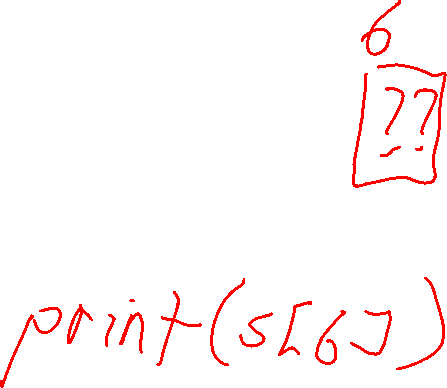 6
??
print(s[6])